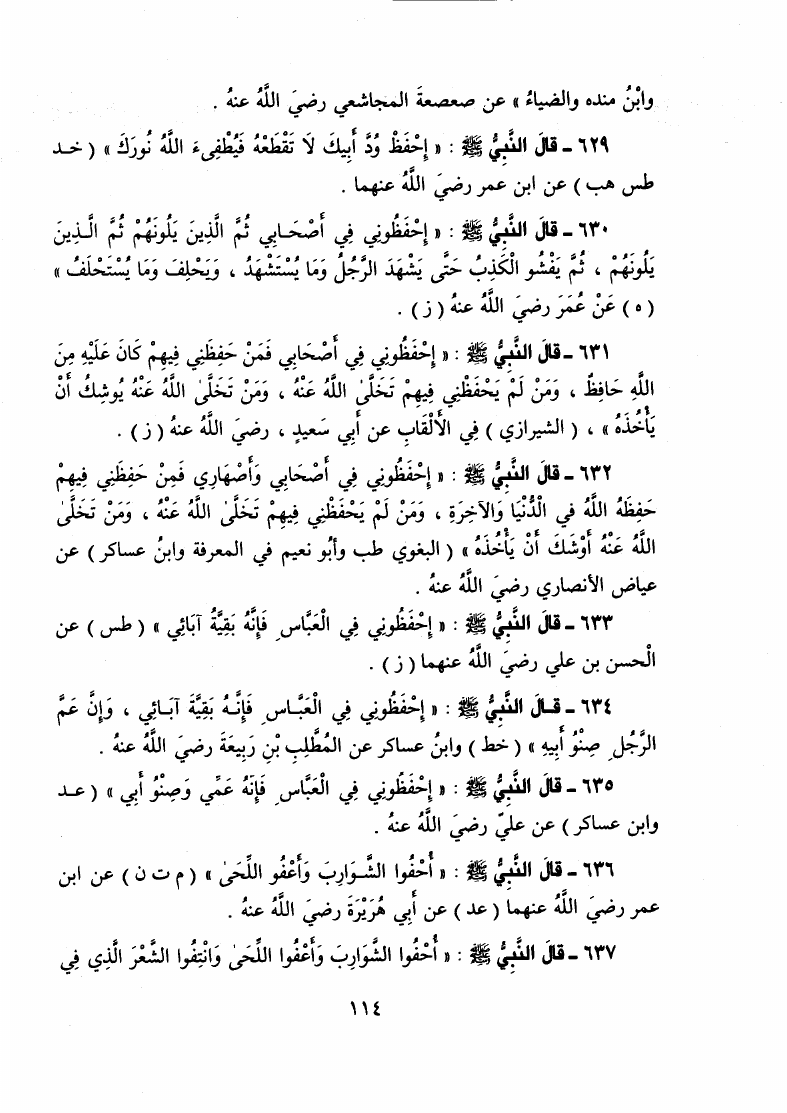 وابْنُ منده والضياءُ » عن صعصعةَ المجاشعي رضيَ اللَّهُ عنهُ .
٦٢٩ ـ قالَ النَّبِيُّ ﷺ : « إِحْفَظْ وُدَّ أَبِيكَ لَا تَقْطَعْهُ فَيُطْفِىءَ اللَّهُ نُورَكَ » ( خـد
طس هب ) عن ابن عمر رضيَ اللَّهُ عنهما .
٦٣٠ ـ قالَ النَّبِيُّ ﷺ : « إِحْفَظُونِي فِي أَصْحَابِي ثُمَّ الَّذِينَ يَلُونَهُمْ ثُمَّ الَّـذِينَ
يَلُونَهُمْ ، ثُمَّ يَفْشُو الْكَذِبُ حَتَّى يَشْهَدَ الرَّجُلُ وَمَا يُسْتَشْهَدُ ، وَيَحْلِفَ وَمَا يُسْتَحْلَفُ »
( ه ) عَنْ عُمَرَ رضيَ اللَّهُ عنهُ ( ز ) .
٦٣١ ـ قالَ النَّبِيُّ ﷺ : « إِحْفَظُونِي فِي أَصْحَابِي فَمَنْ حَفِظَنِي فِيهِمْ كَانَ عَلَيْهِ مِنَ
اللَّهِ حَافِظٌ ، وَمَنْ لَمْ يَحْفَظْنِي فِيهِمْ تَخَلَّىٰ اللَّهُ عَنْهُ ، وَمَنْ تَخَلَّىٰ اللَّهُ عَنْهُ يُوشِكُ أَنْ
يَأْخُذَهُ » ، ( الشيرازي ) فِي الْأَلْقَابِ عن أَبِي سَعيدٍ ، رضيَ اللَّهُ عنهُ ( ز ) .
٦٣٢ ـ قالَ النَّبِيُّ ﷺ : « إِحْفَظُونِي فِي أَصْحَابِي وَأَصْهَارِي فَمَنْ حَفِظَنِي فِيهِمْ
حَفِظَهُ اللَّهُ في الْدُّنْيَا وَالآخِرَةِ ، وَمَنْ لَمْ يَحْفَظْنِي فِيهِمْ تَخَلَّىٰ اللَّهُ عَنْهُ ، وَمَنْ تَخَلَّىٰ
اللَّهُ عَنْهُ أَوْشَكَ أَنْ يَأْخُذَهُ » ( البغوي طب وأَبُو نعيم في المعرفة وابنُ عساكر ) عن
عياض الأنصاري رضيَ اللَّهُ عنهُ .
٦٣٣ ـ قالَ النَّبِيُّ ﷺ : « إِحْفَظُونِي فِي الْعَبَّاسِ فَإِنَّهُ بَقِيَّةُ آبَائِي » ( طس ) عن
الْحسن بن علي رضيَ اللَّهُ عنهما ( ز ) .
٦٣٤ ـ قَـالَ النَّبِيُّ ﷺ : « إِحْفَظُونِي فِي الْعَبَّـاسِ فَإِنَّـهُ بَقِيَّةُ آبَـائِي ، وَإِنَّ عَمَّ
الرَّجُلِ صِنْوُ أَبِيهِ » ( خط ) وابنُ عساكر عن المُطَّلِبِ بْنِ رَبِيعَةَ رضيَ اللَّهُ عنهُ .
٦٣٥ ـ قالَ النَّبِيُّ ﷺ : « إِحْفَظُونِي فِي الْعَبَّاسِ فَإِنَّهُ عَمِّي وَصِنْوُ أَبِي » ( عـد
وابن عساكر ) عن عليّ رضيَ اللَّهُ عنهُ .
٦٣٦ ـ قالَ النَّبِيُّ ﷺ : « أَحْفُوا الشَّـوَارِبَ وَأَعْفُو اللِّحَىٰ » ( م ت ن ) عن ابن
عمر رضيَ اللَّهُ عنهما ( عد ) عن أَبِي هُرَيْرَةَ رضيَ اللَّهُ عنهُ .
٦٣٧ ـ قالَ النَّبِيُّ ﷺ : « أَحْفُوا الشَّوَارِبَ وَأَعْفُوا اللِّحَىٰ وَانْتِفُوا الشَّعْرَ الَّذِي فِي
١١٤